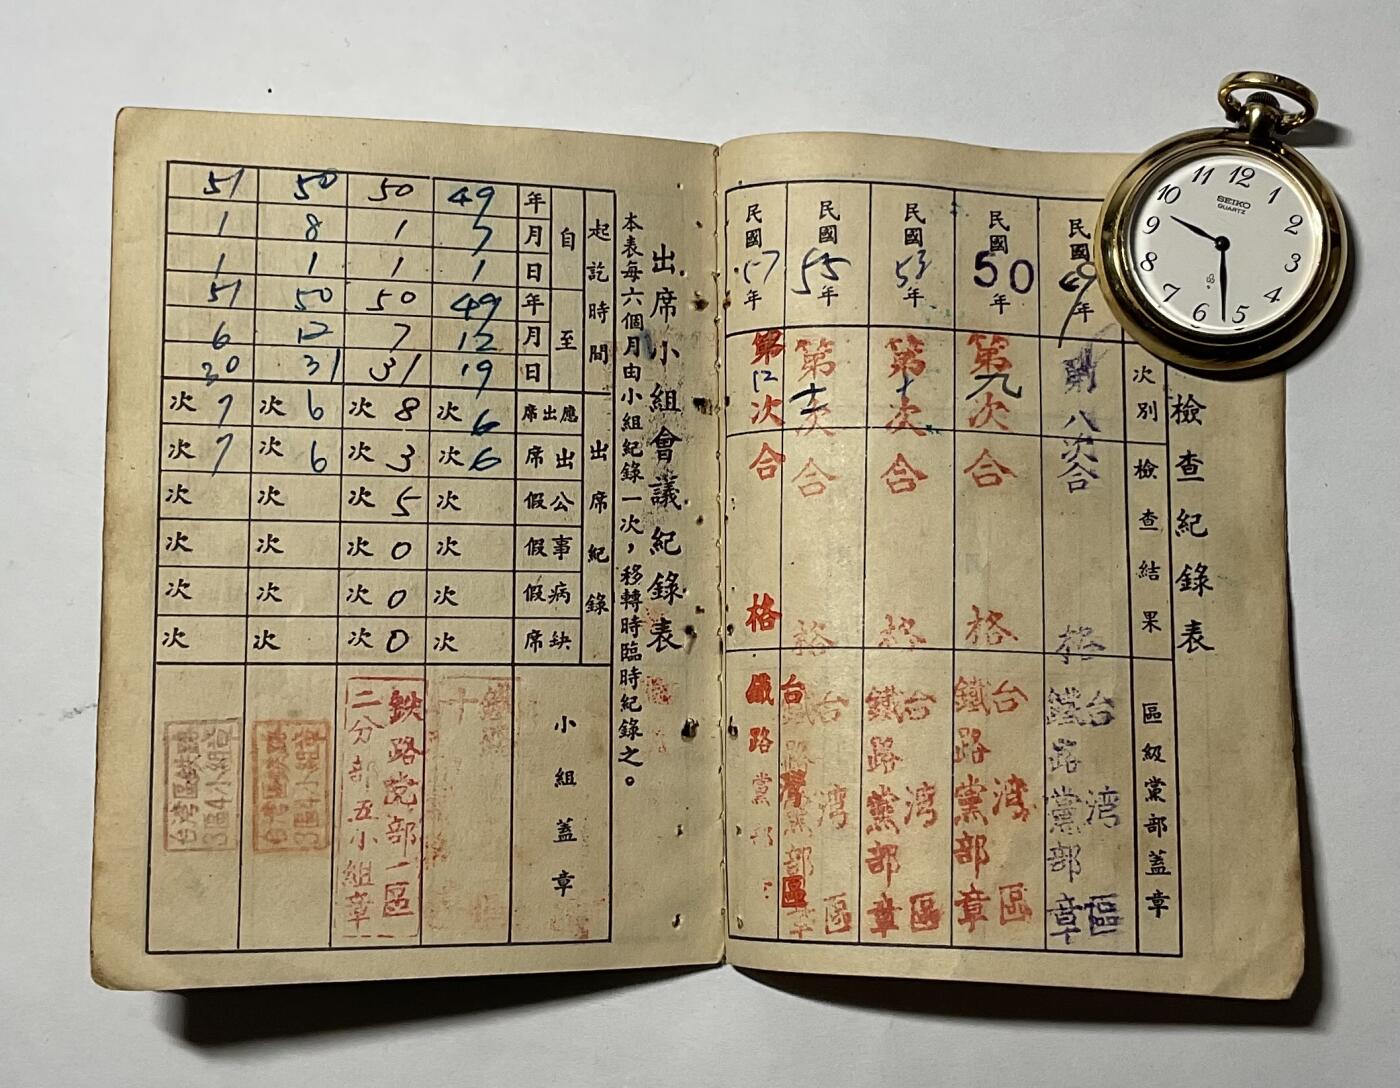 檢查紀錄表
次別
檢查結果
區級黨部蓋章
民國49年
第八次
合格
台灣區
鐵路黨部章
民國50年
第九次
合格
台湾區
鐵路黨部章
民國53年
第十次
合格
台湾區
鐵路黨部章
民國55年
第十一次
合格
台湾區
鐵路黨部章
民國57年
第12次
合格
台灣區
鐵路黨部
出席小組會議紀錄表
本表每六個月由小組紀錄一次，移轉時臨時紀錄之。
起訖時間
自 年月日
至 年月日
出席紀錄
應出席
出席
公假
事假
病假
缺席
小組蓋章
49 7 1
49 12 19
6次
6次
次
次
次
次
50 1 1
50 7 31
8次
3次
5次
0次
0次
0次
鉄路党部一區
二分部五小組章
50 8 1
50 12 31
6次
6次
次
次
次
次
台湾區鉄路
3區4小組章
51 1 1
51 6 30
7次
7次
次
次
次
次
台湾區鉄路
3區4小組章
SEIKO
QUARTZ
12
1
2
3
4
5
6
7
8
9
10
11